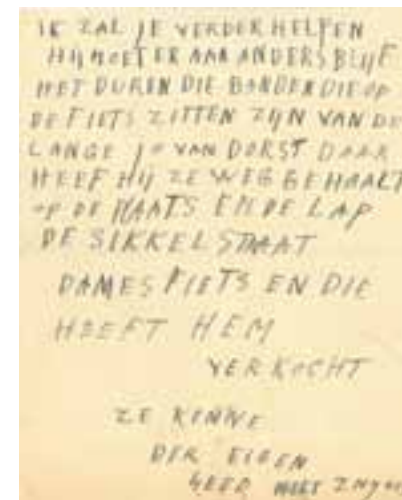 IK ZAL JE VERDER HELPEN
HIJ MOET ER AAN ANDERS BLIJF
HET DUREN DIE BANDEN DIE OP
DE FIETS ZITTEN ZIJN VAN DE
LANGE JO VAN DORST DAAR
HEEF HIJ ZE WEG GEHAALT
OP DE PLAATS EN DE LAP
DE SIKKELSTRAAT
DAMES FIETS EN DIE
HEEFT HEM
VERKOCHT
ZE KINNE
DER EIGEN
GEED NIET